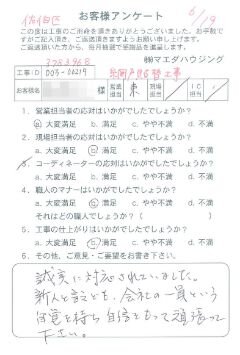 佐伯区
お客様アンケート
6/19
この度は工事のご用命を頂きありがとうございました。お手数で
すがご記入頂き、ご返送頂きますようお願い申し上げます。
ご返送頂いた方に、毎月抽選で粗品を進呈します。
3783968
㈱マエダハウジング
工事ID
003-00219
玄関戸取替工事
お客様名
様
営業担当
東
現場担当
IC担当
1. 営業担当者の応対はいかがでしたでしょうか?
a. 大変満足 b. 満足 c. やや不満 d. 不満
2. 現場担当者の応対はいかがでしたでしょうか?
a. 大変満足 b. 満足 c. やや不満 d. 不満
3. コーディネーターの応対はいかがでしたでしょうか?
a. 大変満足 b. 満足 c. やや不満 d. 不満
4. 職人のマナーはいかがでしたでしょうか?
a. 大変満足 b. 満足 c. やや不満 d. 不満
それはどの職人でしょうか?( )
5. 工事の仕上がりはいかがでしたでしょうか?
a. 大変満足 b. 満足 c. やや不満 d. 不満
6. その他、ご意見・ご要望をお聞かせ下さい。
誠実に対応されていました。
新人と言えども、会社の一員という
自覚を持ち自信をもって頑張って
下さい。